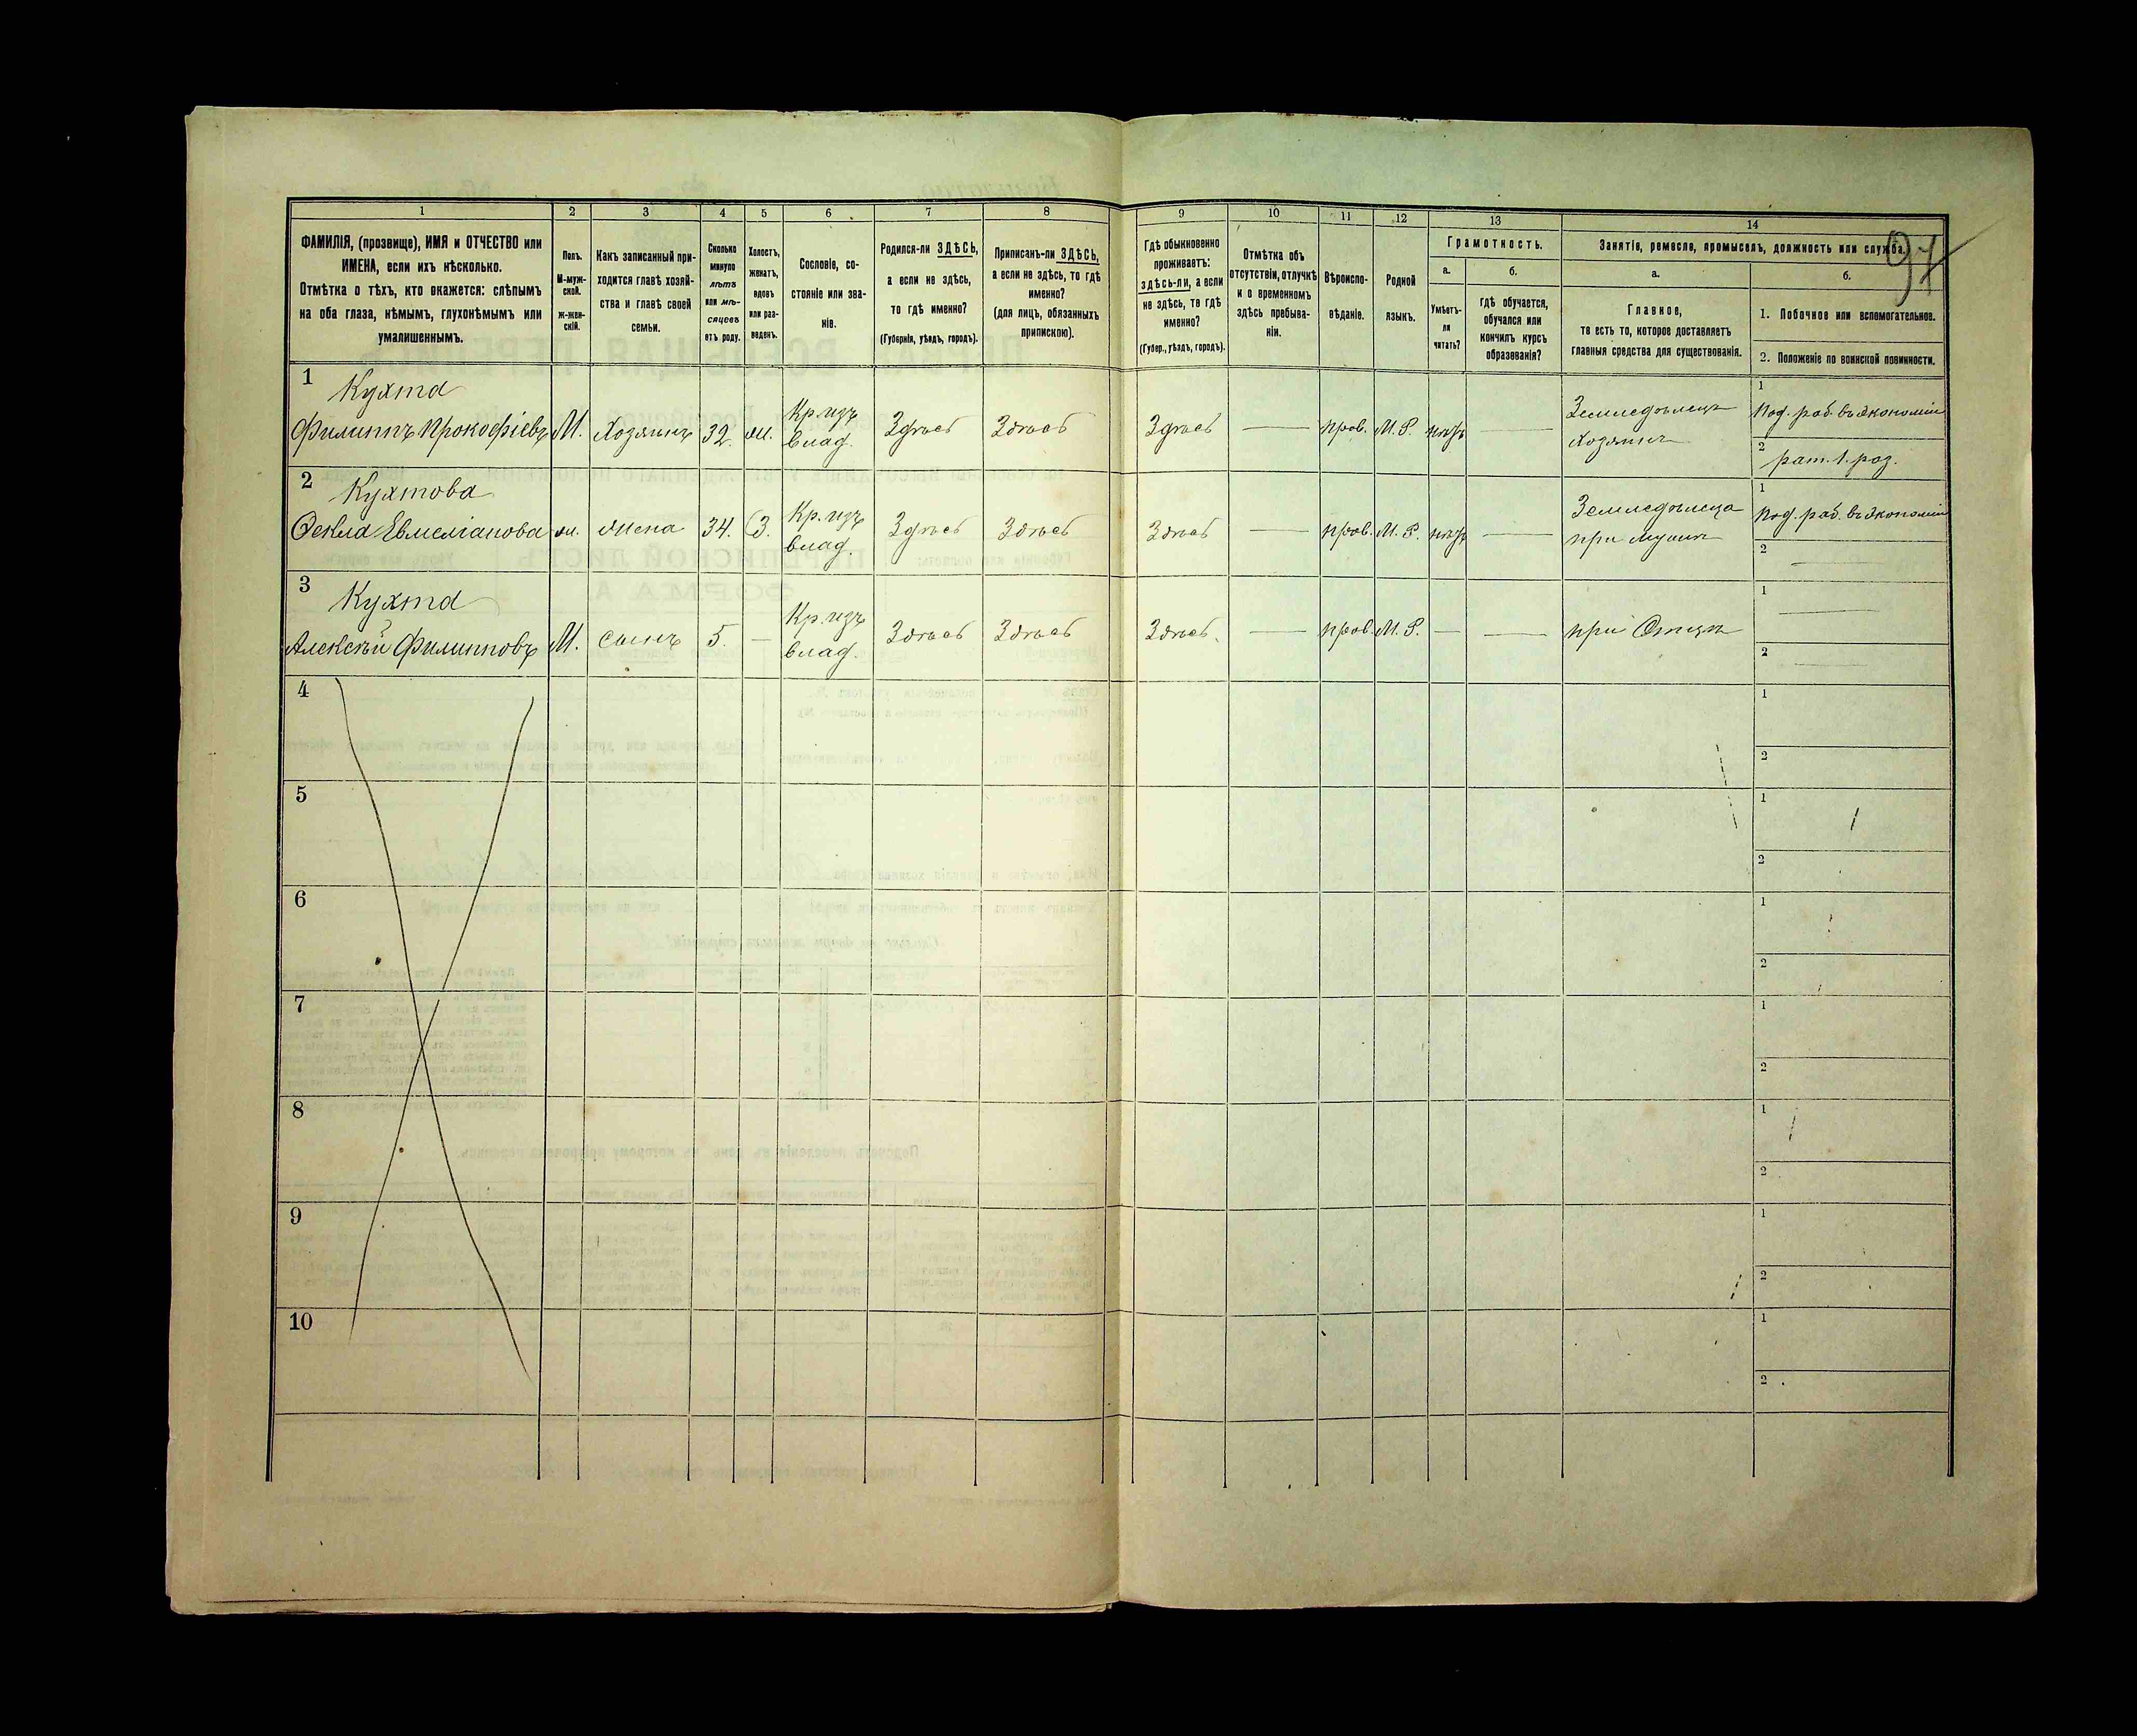 97
1 2 3 4 5 6 7 8 9 10 11 12 13 14
ФАМИЛІЯ, (прозвище), ИМЯ и ОТЧЕСТВО или
ИМЕНА, если ихъ нѣсколько.
Отмѣтка о тѣхъ, кто окажется: слѣпымъ
на оба глаза, нѣмымъ, глухонѣмымъ или
умалишеннымъ.
Полъ.
М-муж-
ской.
ж-жен-
скій.
Какъ записанный при-
ходится главѣ хозяй-
ства и главѣ своей
семьи.
Сколько
минуло
лѣтъ
или мѣ-
сяцевъ
отъ роду.
Холостъ,
женатъ,
вдовъ
или раз-
веденъ.
Сословіе, со-
стояніе или зва-
ніе.
Родился-ли ЗДѢСЬ,
а если не здѣсь,
то гдѣ именно?
(Губернія, уѣздъ, городъ).
Приписанъ-ли ЗДѢСЬ,
а если не здѣсь, то гдѣ
именно?
(для лицъ, обязанныхъ
припискою).
Гдѣ обыкновенно
проживаетъ:
здѣсь-ли, а если
не здѣсь, то гдѣ
именно?
(Губер., уѣздъ, городъ).
Отмѣтка объ
отсутствіи, отлучкѣ
и о временномъ
здѣсь пребыва-
ніи.
Вѣроиспо-
вѣданіе.
Родной
языкъ.
Грамотность.
а.
Умѣетъ-
ли
читать?
б.
Гдѣ обучается,
обучался или
кончилъ курсъ
образованія?
Занятіе, ремесло, промыселъ, должность или служба.
а.
Главное,
то есть то, которое доставляетъ
главныя средства для существованія.
б.
1. Побочное или вспомогательное.
2. Положеніе по воинской повинности.
1 Кухта
Филиппъ Прокофіевъ М. Хозяинъ 32. ж. Кр. изъ влад. Здѣсь Здѣсь Здѣсь — прав. М. Р. нѣтъ — Земледѣлецъ Хозяинъ
1 Под. раб. въ экономіи
2 рат. 1. раз.
2 Кухтова
Фекла Евмелianова ж. жена 34. З. Кр. изъ влад. Здѣсь Здѣсь Здѣсь — прав. М. Р. нѣтъ — Земледѣлица при мужѣ
1 Под. раб. въ экономіи
2 —
3 Кухта
Алексѣй Филипповъ М. сынъ 5. — Кр. изъ влад. Здѣсь Здѣсь Здѣсь. — прав. М. Р. — — при Отцѣ
1 —
2 —
4 1
2
5 1
2
6 1
2
7 1
2
8 1
2
9 1
2
10 1
2